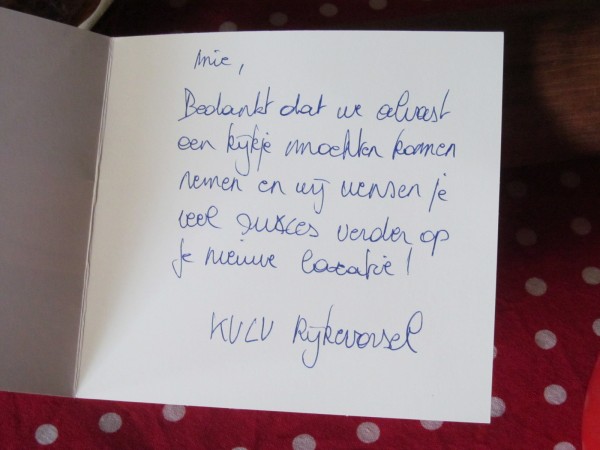 Mie,
Bedankt dat we alvast
een kijkje mochten komen
nemen en wij wensen je
veel sukses verder op
je nieuwe locatie!
KVLV Rijkevorsel